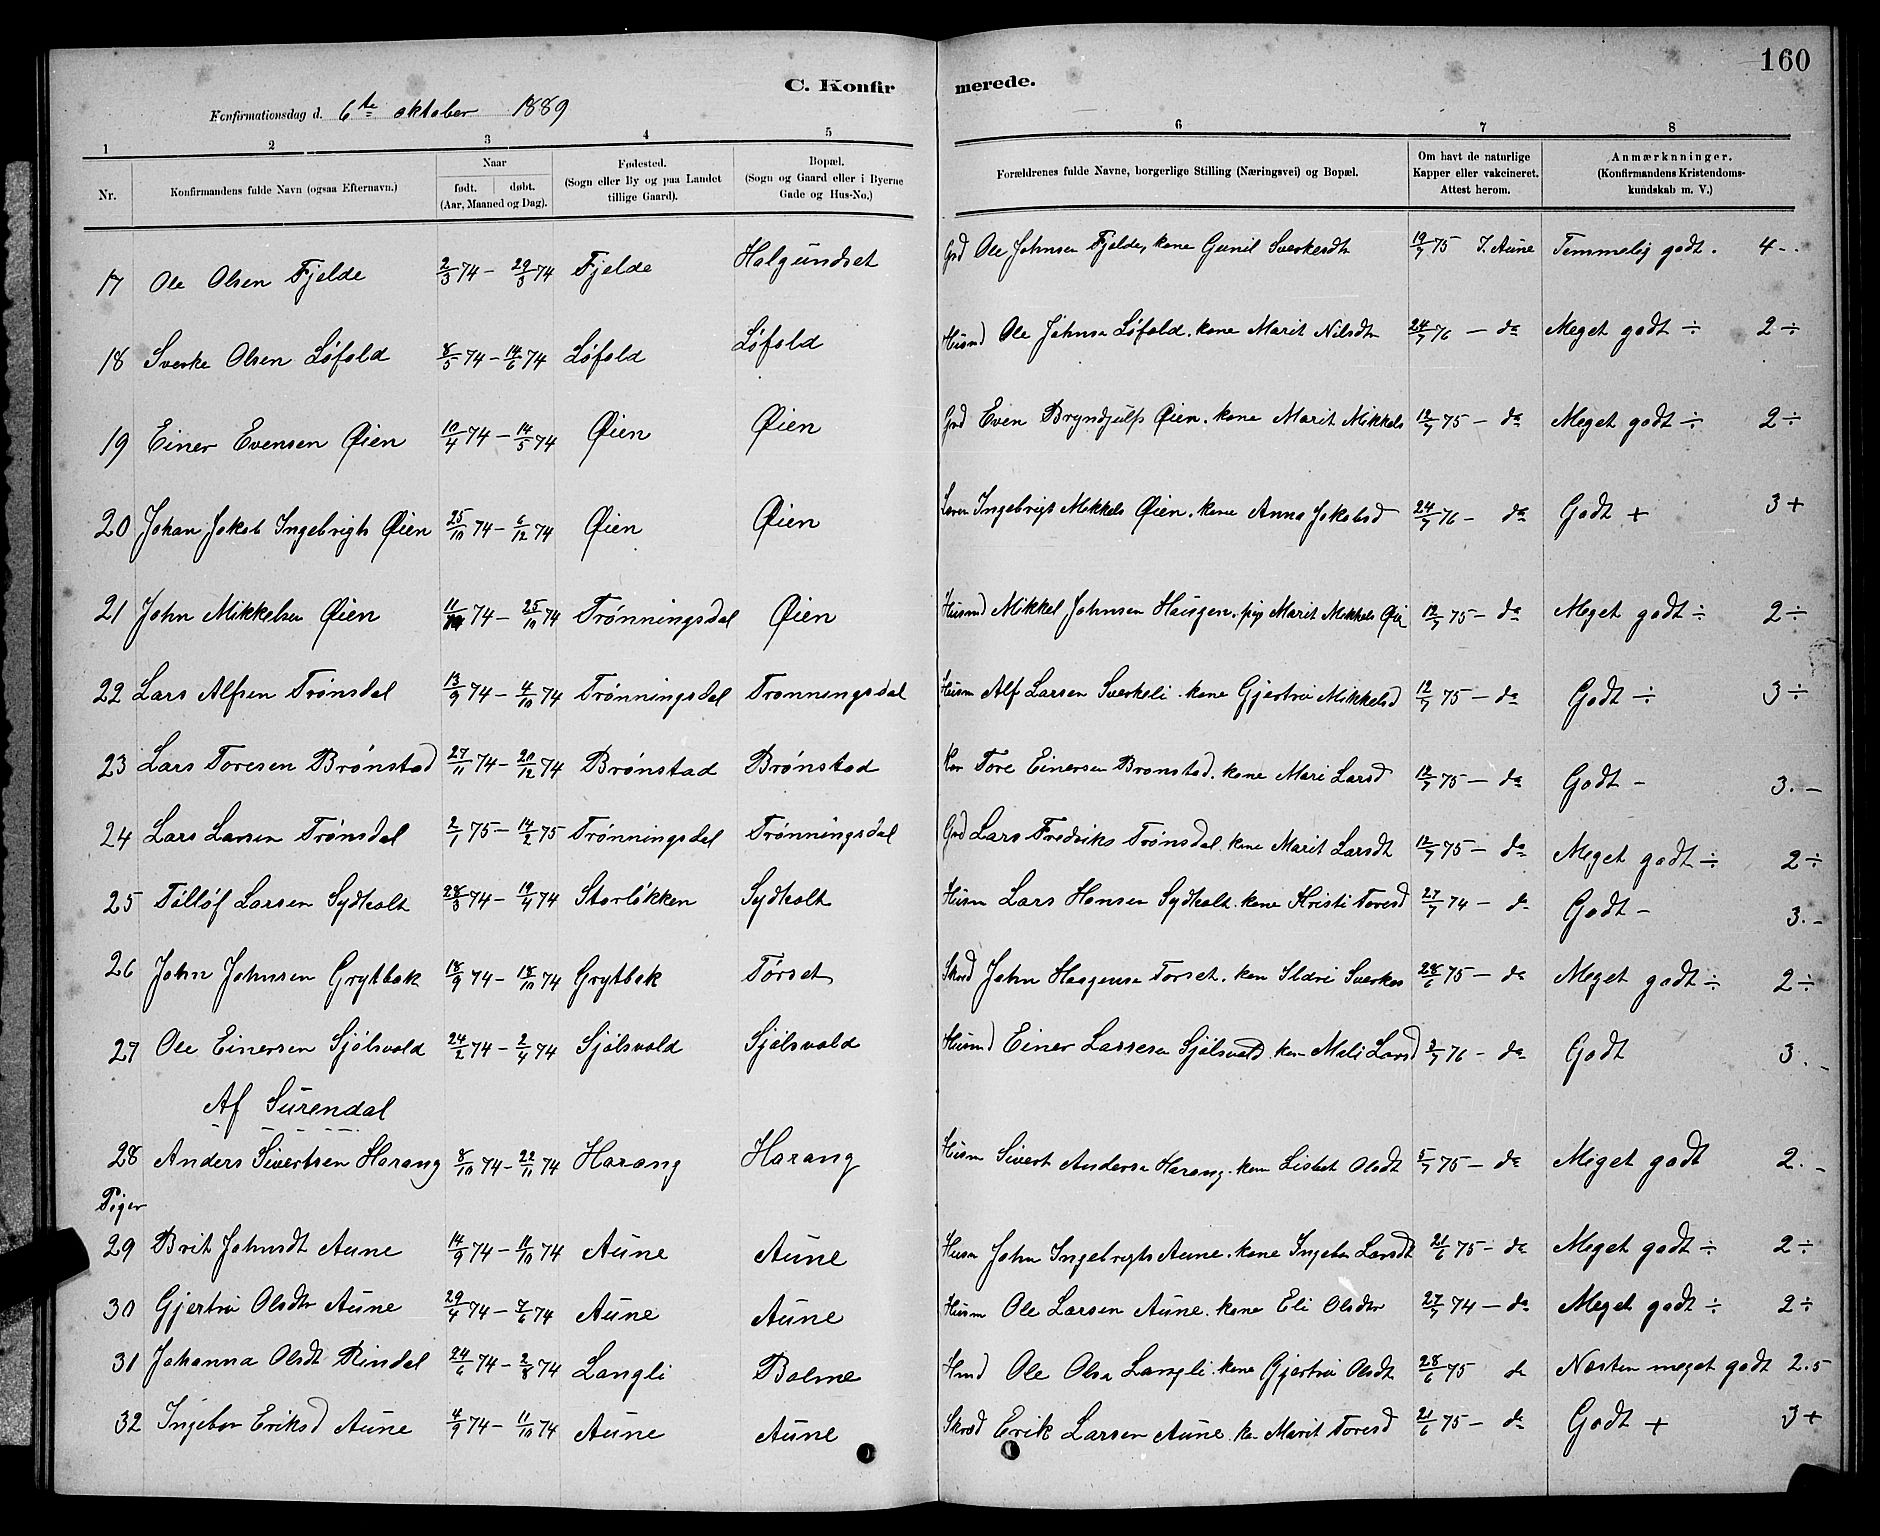 160
C. Konfirmerede.
Konfirmationsdag d. 6te oktober 1889
1 2 3 4 5 6 7 8
Nr. Konfirmandens fulde Navn (ogsaa Efternavn.) Naar født. døbt. (Aar, Maaned og Dag). Fødested. (Sogn eller By og paa Landet tillige Gaard). Bopæl. (Sogn og Gaard eller i Byerne Gade og Hus-No.) Forældrenes fulde Navne, borgerlige Stilling (Næringsvei) og Bopæl. Om havt de naturlige Kapper eller vakcineret. Attest herom. Anmærkninger. (Konfirmandens Kristendomskundskab m. V.)
17 Ole Olsen Fjelde 2/3 74 - 29/3 74 Fjelde Halgundset Grd Ole Johnsen Fjelde, kone Gunil Sverkesdt 19/7 75 I. Aune Temmelig godt. 4 - .
18 Sverke Olsen Løfald 8/5 74 - 14/6 74 Løfald Løfald Husmd Ole Johnsn Løfald. kone Marit Nilsdtr 24/7 76 - do Meget godt ÷ 2 ÷
19 Einer Evensen Øien 10/4 74 - 14/5 74 Øien Øien Grd Even Bryndjulfs Øien. kone Marit Mikkels 12/7 75 - do Meget godt ÷ 2 ÷
20 Johan Jakob Ingebrigts Øien 25/10 74 - 6/12 74 Øien Øien Ingebrigt Mikkels Øien. kone Anna Jakobsd 24/7 76 - do Godt + 3 +
21 John Mikkelsen Øien 11/ 74 - 25/10 74 Trønningsdal Øien Husmd Mikkel Johnsen Haugen. pig Marit Mikkels Øie 12/7 75 - do Meget godt ÷ 2 ÷
22 Lars Alfsen Trønsdal 13/9 74 - 4/10 74 Trønningsdal Trønningsdal Husm Alf Larsen Sverkeli. kone Gjertrø Mikkelsd 12/7 75 - do Godt ÷ 3 ÷
23 Lars Toresen Brønstad 27/11 74 - 20/12 74 Brønstad Brønstad Kor Tore Einersen Brønstad. kone Mari Larsd 12/7 75 - do Godt - 3. -
24 Lars Larsen Trønsdal 2/1 75 - 14/2 75 Trønningsdal Trønningsdal Grd Lars Fredriks Trønsdal. kone Marit Larsdt 12/7 75 - do Meget godt ÷ 2 ÷
25 Tølløf Larsen Sydhalt 28/3 74 - 19/4 74 Storløkken Sydhalt Husm Lars Hansen Sydhalt. kone Kristi Toresd 27/7 74 - do Godt - 3. -
26 John Johnsen Grytbak 18/9 74 - 18/10 74 Grytbak Tørset Skrd John Haagensn Tørset. kon Sldri Sverkes 28/6 75 - do Meget godt ÷ 2 ÷
27 Ole Einersen Sjølsvold 24/2 74 - 2/4 74 Sjølsvold Sjølsvold Husmd Einer Larsesen Sjølsvold. kon Mali Larsd 2/7 76 - do Godt 3. -
Af Surendal
28 Anders Sivertsen Harang 8/10 74 - 22/11 74 Harang Harang Husm Sivert Andersn Harang. kon Lisbet Olsdt 5/7 75 - do Meget godt 2. -
Piger
29 Brit Johnsdt Aune 14/9 74 - 11/10 74 Aune Aune Husm John Ingebrigts Aune. kone Ingebor Larsdt 21/6 75 - do Meget godt ÷ 2 ÷
30 Gjertrø Olsdtr Aune 29/4 74 - 7/6 74 Aune Aune Husm Ole Larsen Aune. kone Eli Olsdtr 27/7 74 - do Meget godt ÷ 2 ÷
31 Johanna Olsdt Rindal 24/6 74 - 2/8 74 Langli Bolme Hmd Ole Olsn Langli. kone Gjertrø Olsdt 28/6 75 do Næsten meget godt 2.5
32 Ingebor Eriksd Aune 4/9 74 - 11/10 74 Aune Aune Skrd Erik Larsen Aune. kon Marit Toresd 21/6 75 - do Godt + 3 +